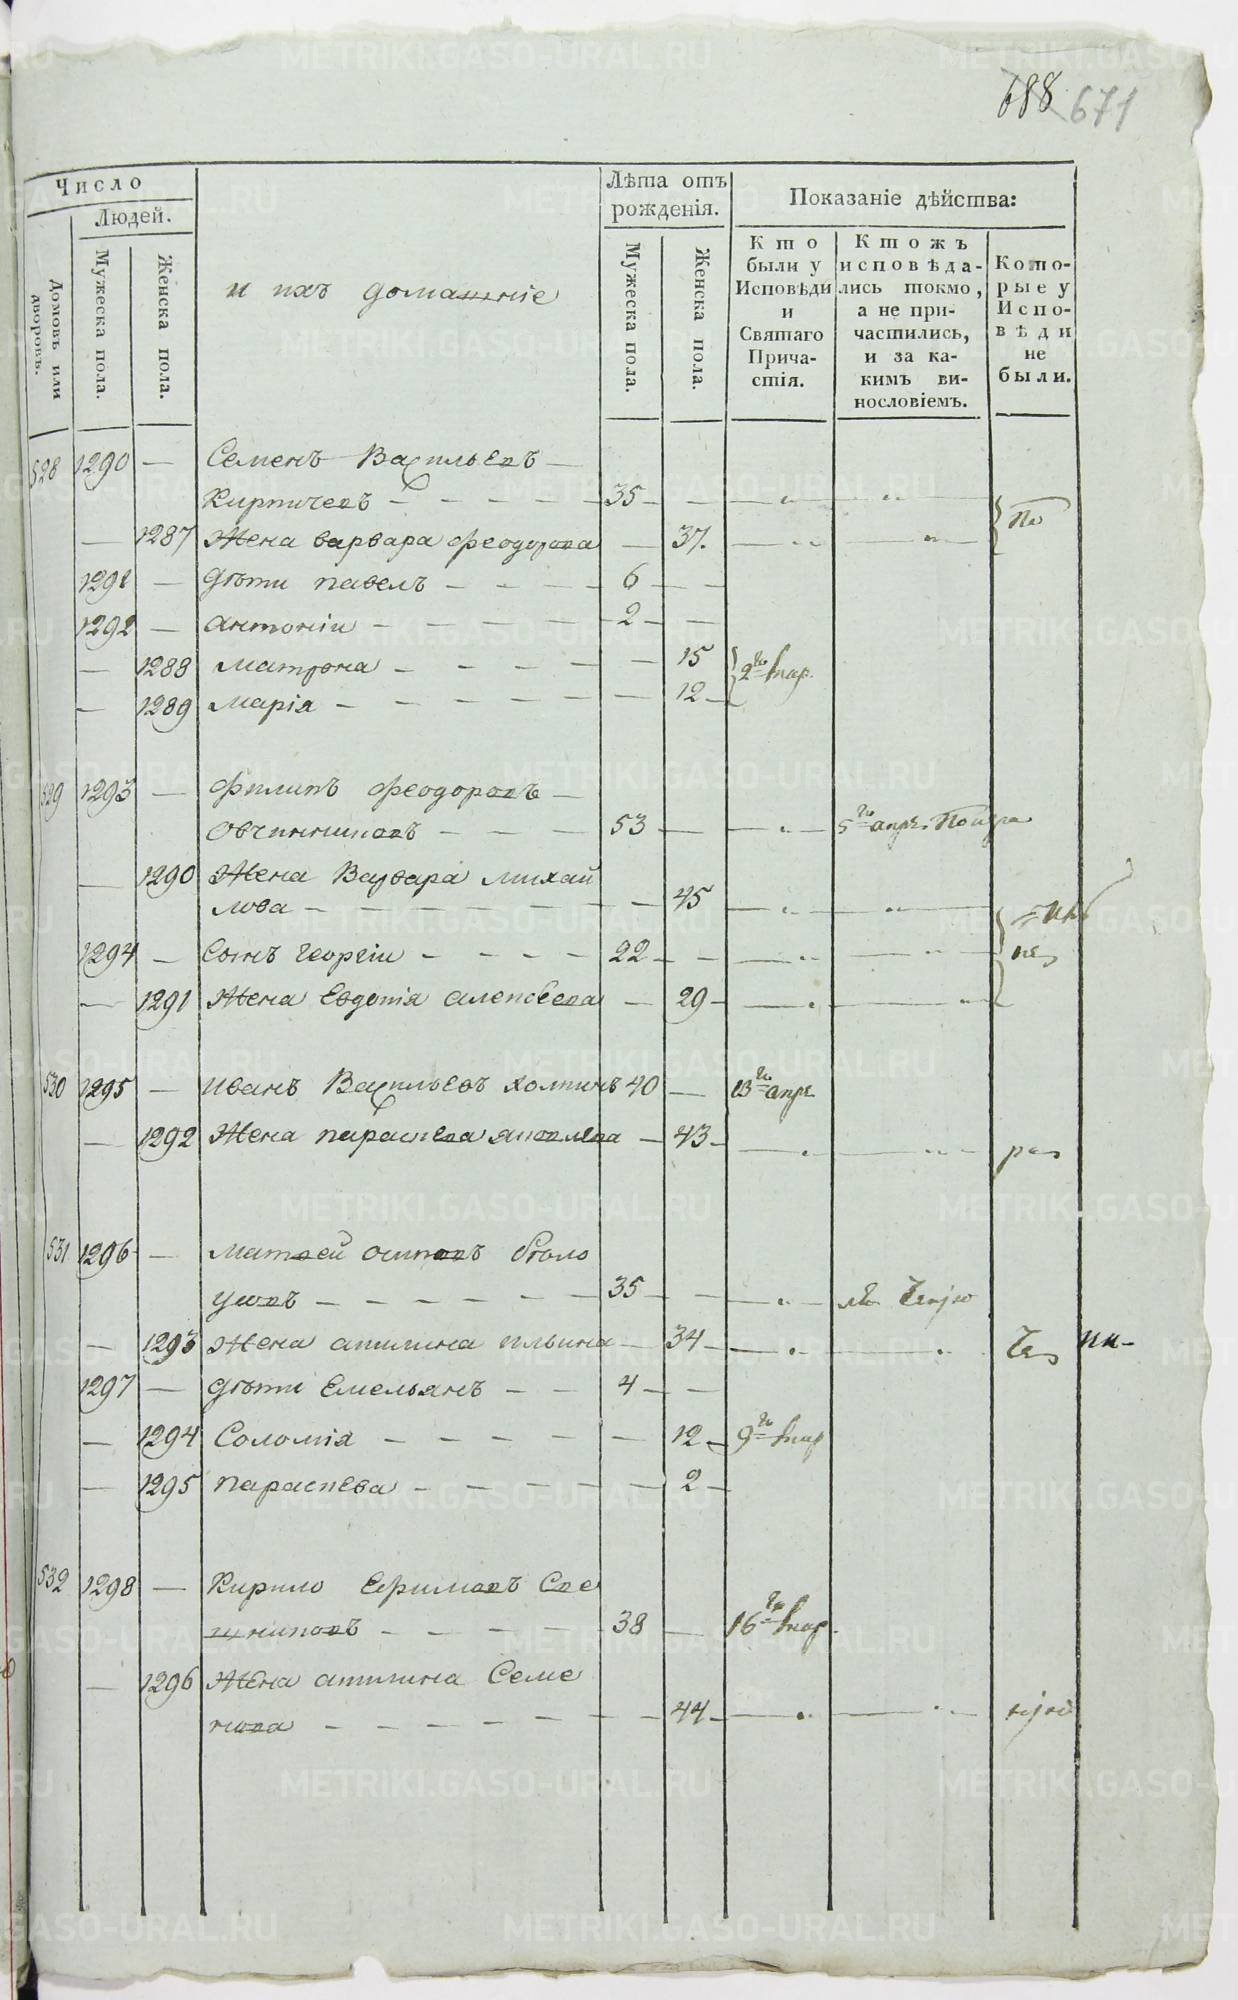 688 671
Число
Людей.
Домовъ или дворовъ.
Мужеска пола.
Женска пола.
и ихъ домашніе
Лѣта отъ рожденія.
Мужеска пола.
Женска пола.
Показаніе дѣйства:
Кто были у Исповѣди и Святаго Причастія.
Ктожъ исповѣдались токмо, а не причастились, и за какимъ винословіемъ.
Которые у Исповѣди не были.
528 1290 — Семенъ Васильевъ —
Кирпичевъ — 35 —
— 1287 Жена варвара феодорова — 37.
1291 — дѣти павелъ — 6 —
1292 — антоніи — 2 —
— 1288 матрона — 15
— 1289 марія — 12 2го мар.
529 1293 — филипъ феодоровъ —
Овчинниковъ — 53 — 5го апрѣ.
— 1290 Жена Варвара михай
лова — 45
1294 — Сынъ георгіи — 22 —
— 1291 Жена Евдокія алексѣева — 29
530 1295 — иванъ Васильевъ холкинъ 40 — 13го апрѣ
— 1292 Жена параскева яковлева — 43
531 1296 — матвей осиповъ
35 —
— 1293 Жена акилина ильина — 34
1297 — дѣти Емельянъ — 4 —
— 1294 Соломія — 12 9го мар
— 1295 параскева — 2
532 1298 — Кирило Ефимовъ Све
шниковъ — 38 — 16го мар.
— 1296 Жена акилина Семе
нова — 44
METRIKI.GASO-URAL.RU